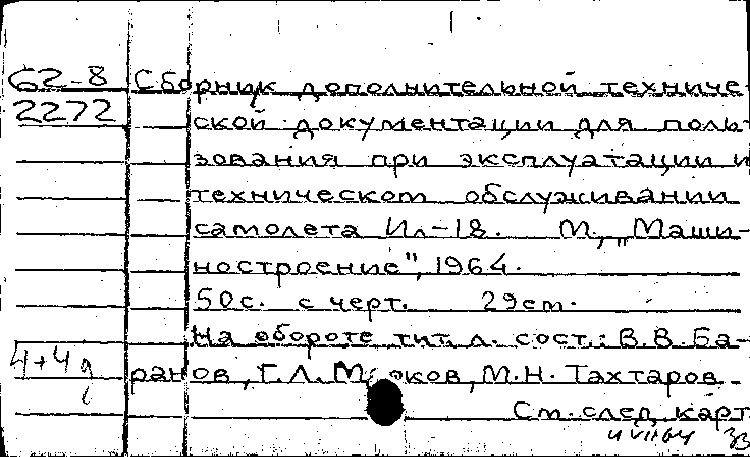 62-8 Сборник дополнительной техниче-
2272 ской документации для поль-
зования при эксплуатации и
техническом обслуживании
самолета Ил-18. М., „Маши-
ностроение", 1964.
50с. с черт. 29cm.
На обороте тит. л. сост.: В.В. Ба-
4+4д ранов, Г.Л. М.Н. Тахтаров.
См. след. карт